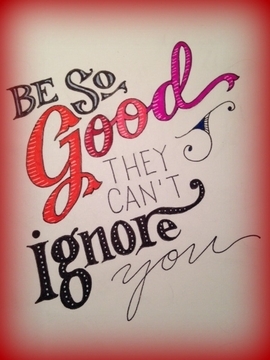 BE So
Good
THEY
CAN'T
ignore
you